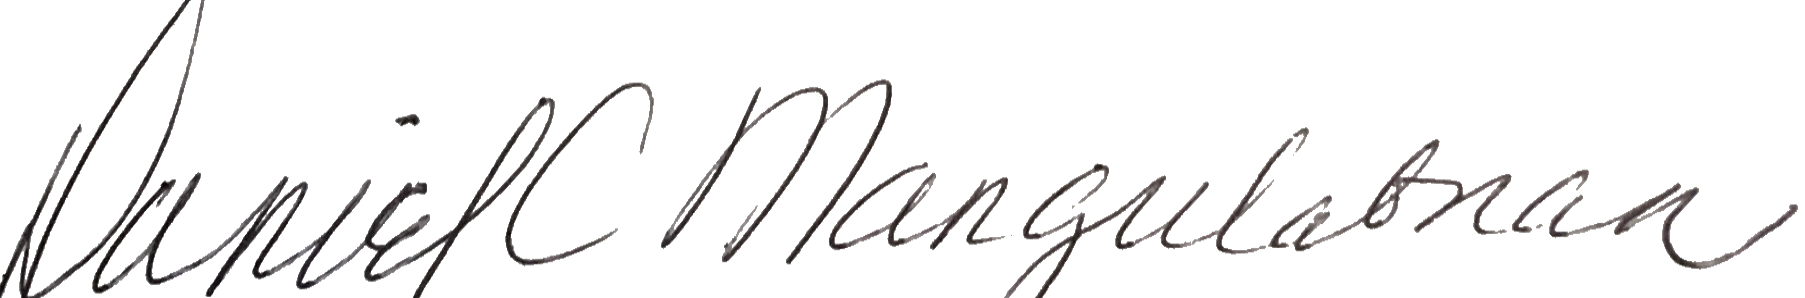 Daniel C Mangulabnan